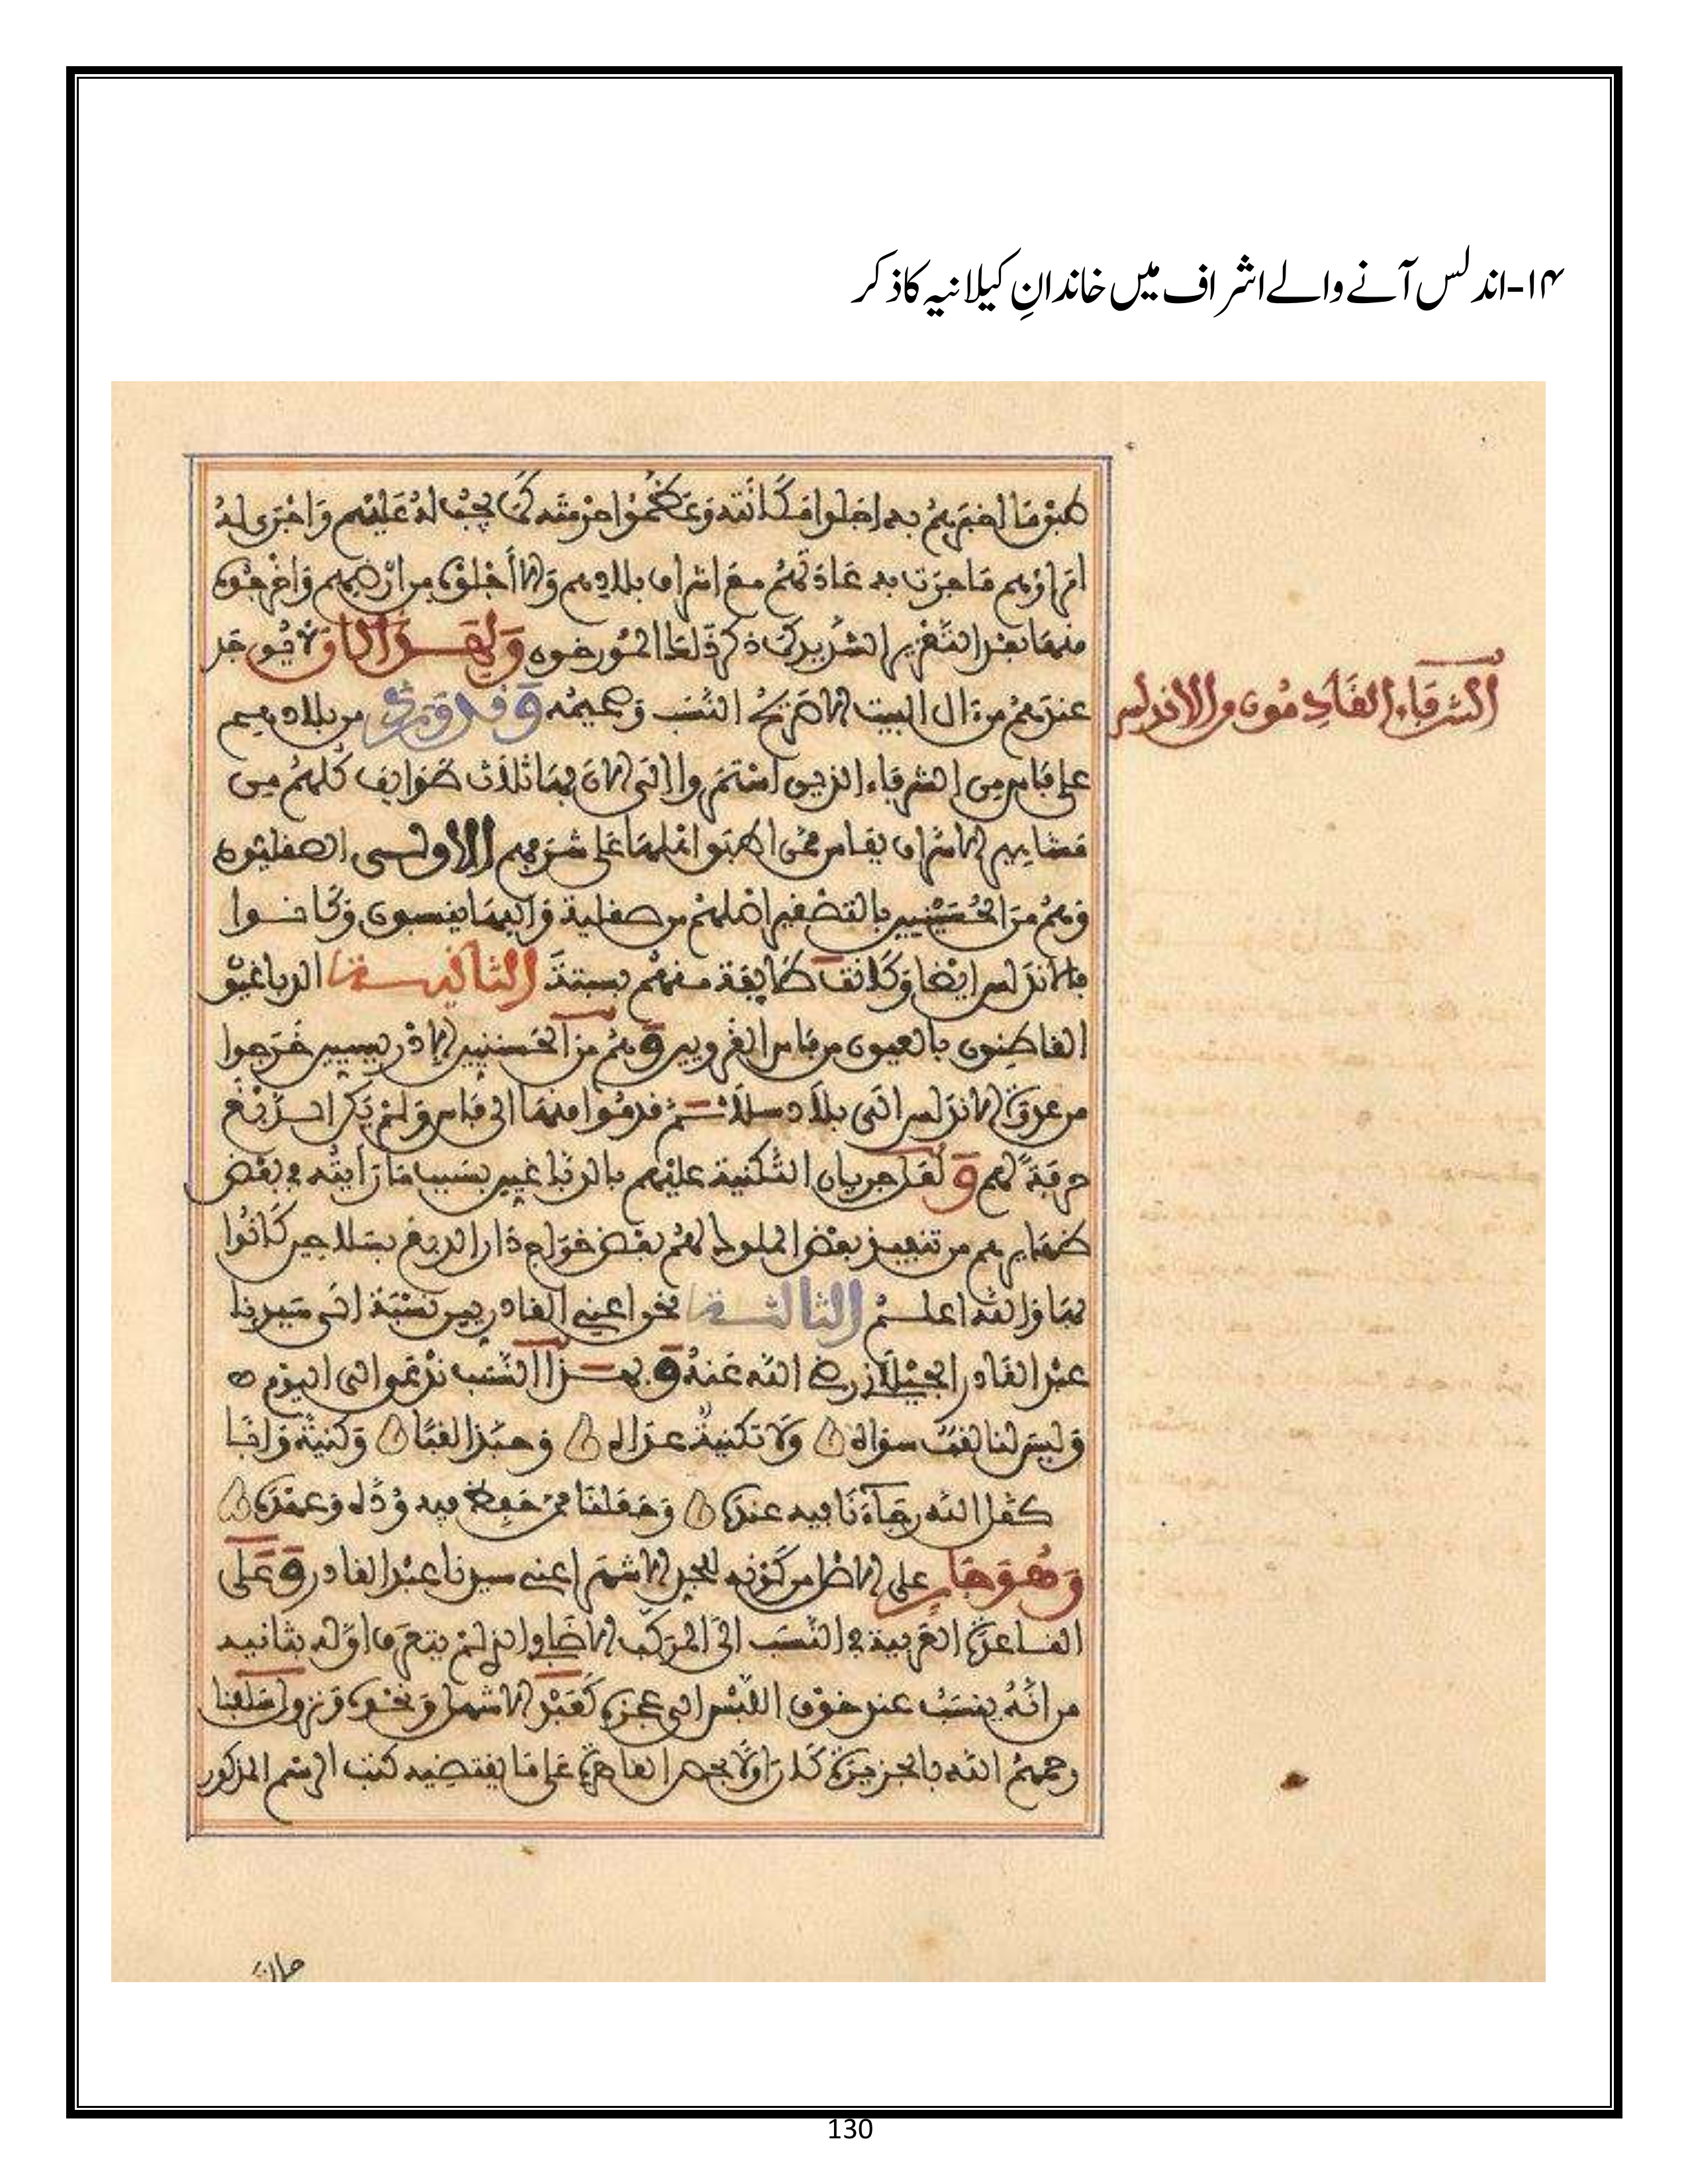 ۱۴-اندلس آنے والے اشراف میں خاندانِ کیلانیہ کا ذکر
الشرفاء القادمون من الاندلس
اخبرهم به اجلوا مكانته وعظموا حرمته كما يجب له عليهم واجرى له
امراؤهم ما جرت به عادتهم مع اشراف بلادهم والا أجلوه من ارضهم واخرجوه
منها بعد التغرير الشديد كما ذكر المورخون ولهذا لا يوجد
عندهم من ال البيت الا صريح النسب وصميمه وقد ورد من بلادهم
على فاس من الشرفاء الذين استمروا الى الان بها ثلاث طوايف كلهم من
مشاهير الاشراف بفاس ممن على شرفهم الاولى الصقليون
وهم من الحسينيين بالتصغير اصلهم من صقلية واليها ينسبون وكانوا
بالاندلس ايضا وكانت طايفة منهم بسبتة الثانية الدباغيون
القاطنون بالعيون من فاس القرويين وهم من الحسنيين الادريسيين خرجوا
من عدوة الاندلس الى بلاد سلا ثم قدموا منها الى فاس ولم يكن الدبغ
حرفة لهم ولعل جريان التكنية عليهم بالدباغيين بسبب ما رايته في بعض
ظهايرهم من تنفيذ بعض الملوك لهم بعض خراج دار الدبغ بسلا حين كانوا
بها والله اعلم الثالثة نحو اعني القادريين نسبة الى سيدنا
عبد القادر الجيلاني رضي الله عنه وبهذا النسب ندعوا الى اليوم
وليس لنا لقب سواه ولا تكنية عدا له وحبذا لقبا وكنية وانا
كفل الله رجاءنا فيه عنده وجعلنا ممن حفظ فيه وده وعهده
وهو جار على الاصل من كونه للجد الاشهر اعني سيدنا عبد القادر وعلى
القاعدة العربية في النسب الى المركب الاضافي الذي لم يتعرف اوله بثانيه
من انه ينسب عند خوف اللبس الى عجزه كعبد الاشهل ونحوه وسلفنا
رحمهم الله بالجزيرة كذا اولا بحضرا القاهرة على ما يقتضيه كتب الرسم المذكور
130